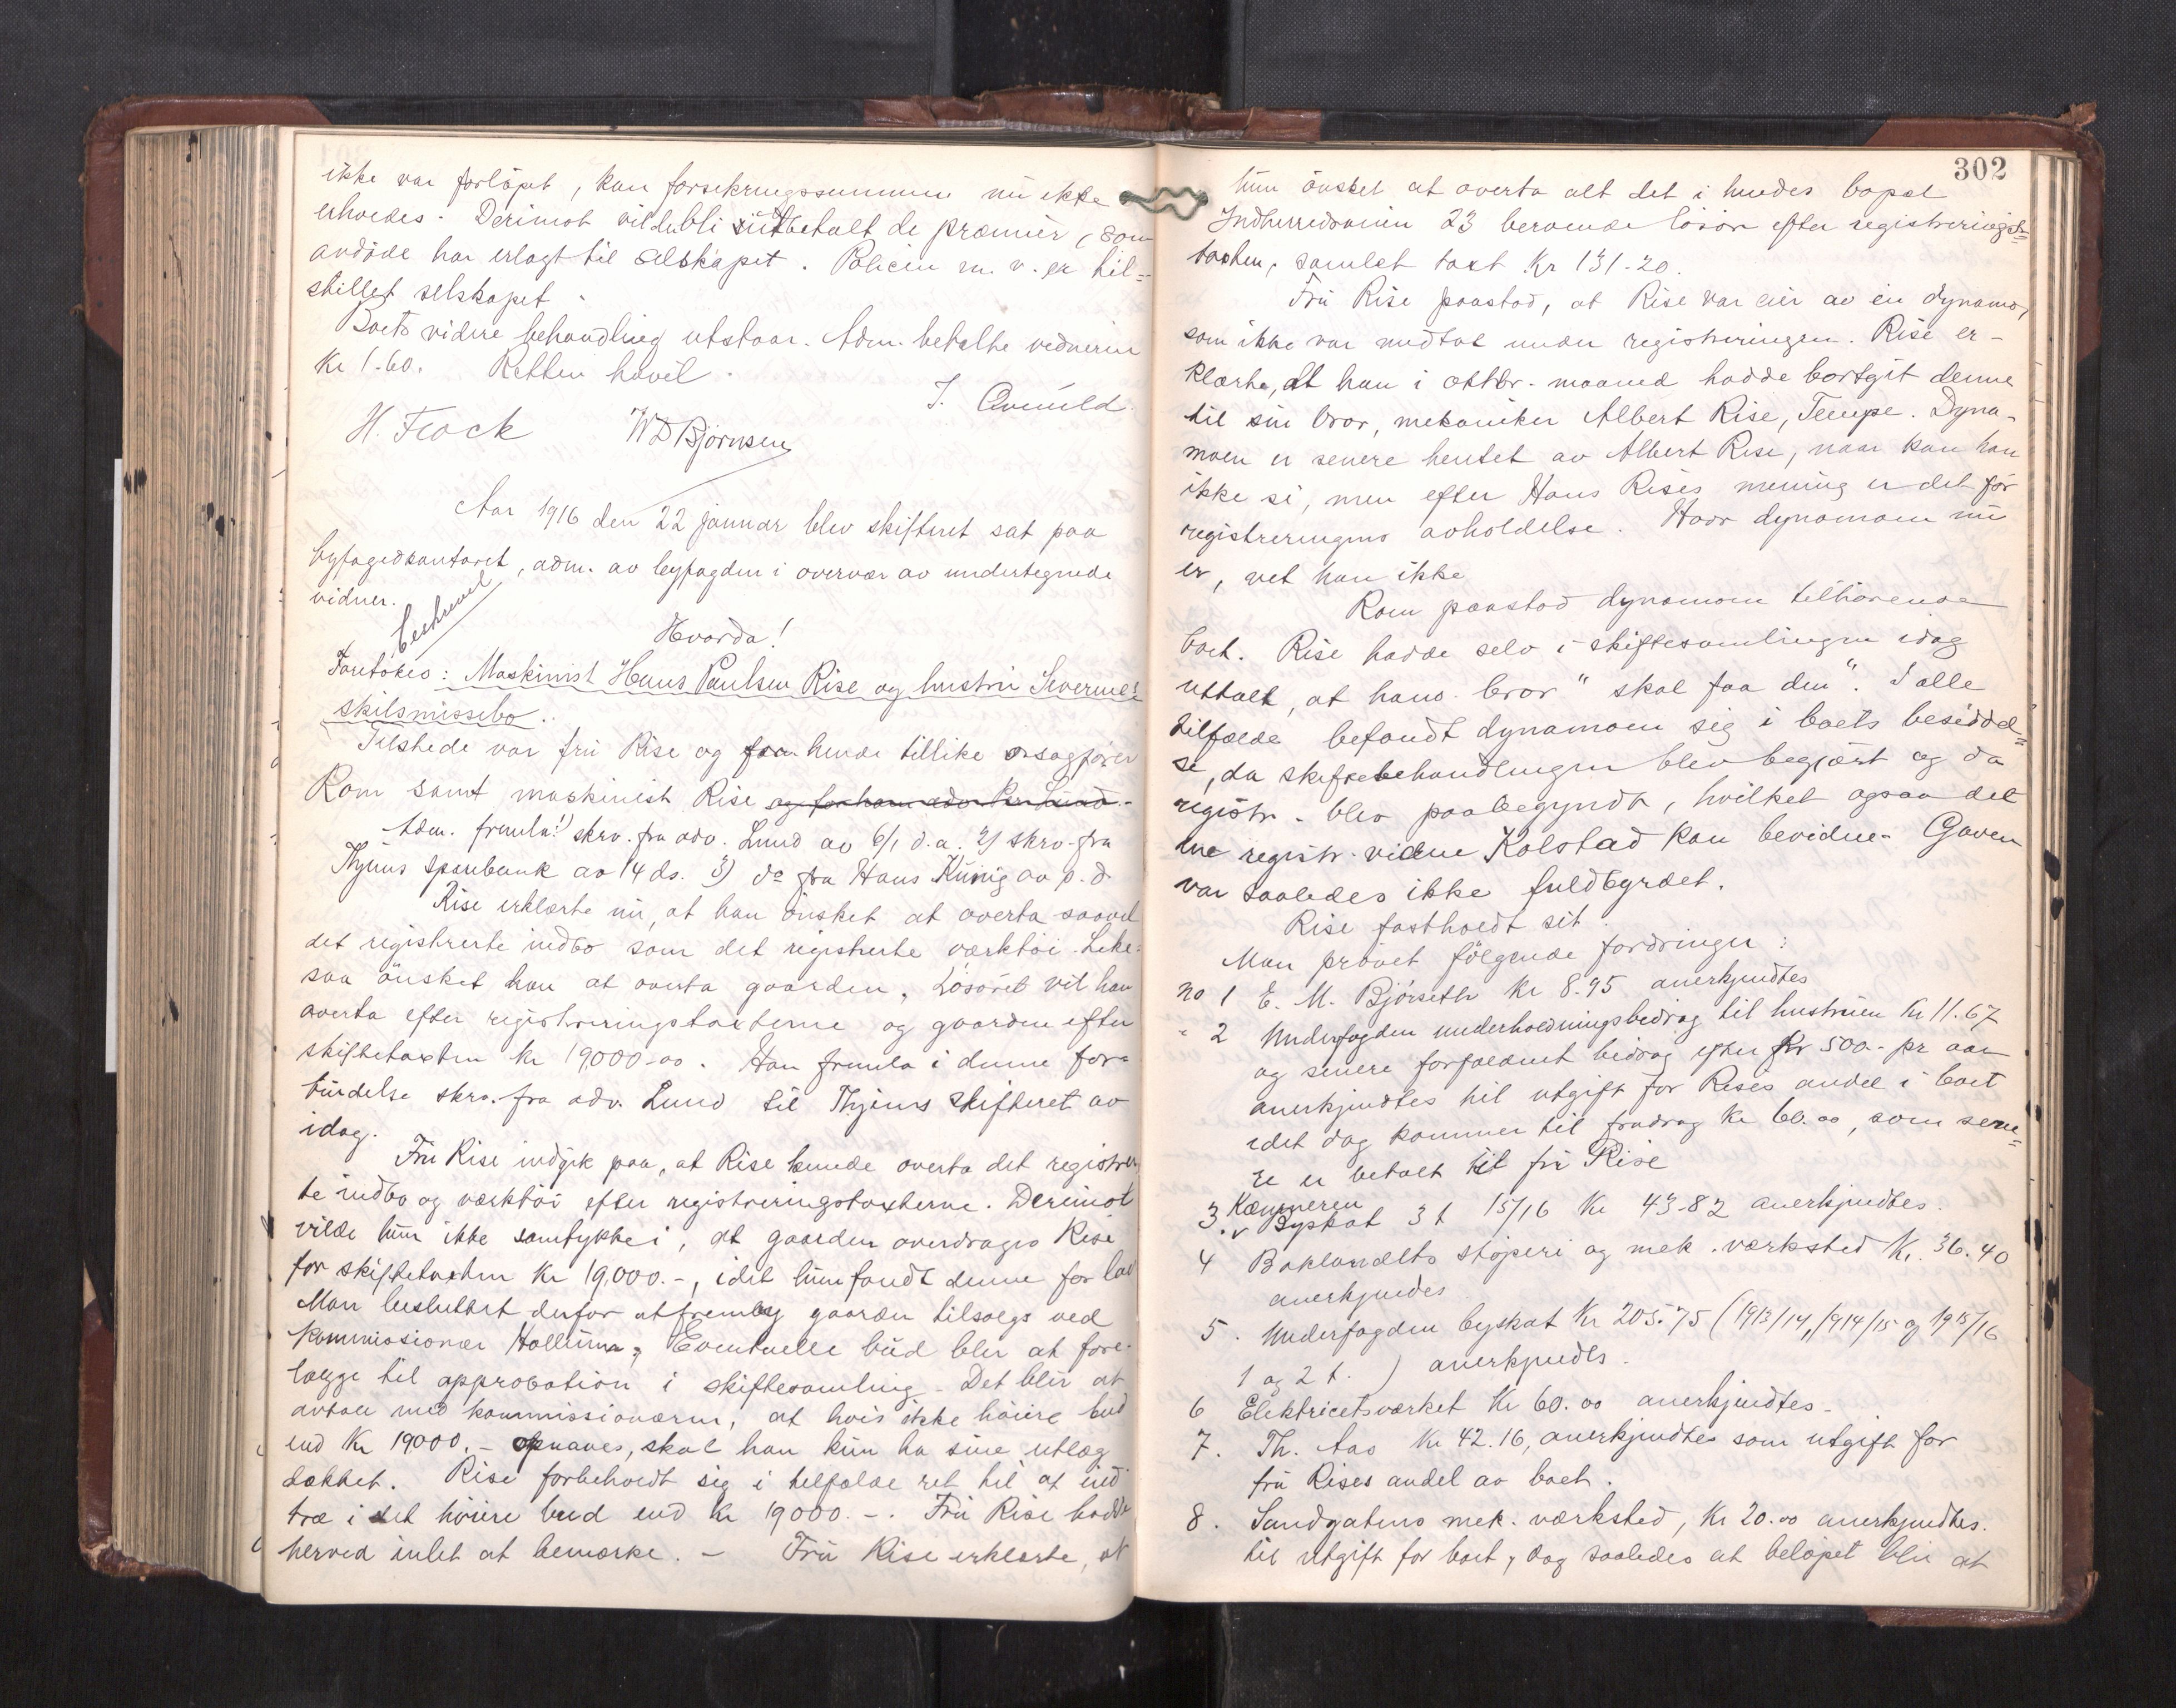 ikke var forløpet, kan forsikringssummen nu ikke
erhverdes. Derimot vil der bli utbetalt de præmier, som
avdöde har erlagt til selskapet. Policen m.v. er til=
stillet selskapet.
Boets videre behandling utstaar. Adm. betalte vidnerne
Kr 1.60. Retten hævet.
H. Fløck WD Bjørnsen
Aar 1916 den 22 januar blev skifteret sat paa
byfogedkontoret, adm. av byfogden i overvær av undertegnede
vidner.
Beskrevet
Hvorda!
Foretokes: Maskinist Hans Paulsen Rise og hustru Severine's
skilsmissebo.
Tilstede var fru Rise og for hende tillike o.sagfører
Rom samt maskinist Rise og for ham adv. Lund.
Adm. fremla 1) skrv. fra adv. Lund av 6/1 d.a. 2) skrv. fra
Thjems Sparebank av 14 ds. 3) do fra Hans König av s.d.
Rise erklærte nu, at han önsket at overta saavel
det registrerte indbo som det registrerte værktöi. Like-
saa önsket han at overta gaarden. Lösöret vil han
overta efter registreringstaxterne og gaarden efter
skiftetaxten kr 19,000-00. Han fremla i denne for=
bindelse skrv. fra adv. Lund til Thjems skifteret av
idag.
Fru Rise indgik paa, at Rise kunde overta det registrer
te indbo og værktöi efter registreringstaxterne. Derimot
vilde hun ikke samtykke i, at gaarden overdrages Rise
for skiftetaxten kr 19,000.-, idet hun fandt denne for lav
Man besluttet derfor at fremby gaarden tilsalgs ved
kommissionær Hallum. Eventuelle bud blir at fore-
lægge til approbation i skiftesamling. Det blir at
avtale med kommissionæren, at hvis ikke höiere bud
end Kr 19000.- opnaaes, skal han kun ha sine utlæg
dækket. Rise forbeholdt sig i tilfælde ret til at ind
træ i det höiere bud end kr 19000.-. Fru Rise hadde
herved intet at bemerke. - Fru Rise erklærte, at
302
hun önsket at overta alt det i hendes bopæl
Indherredsveien 23 beroende lösöre efter registrerings=
taxten, samlet taxt Kr 131-20.
Fru Rise paastod, at Rise var eier av en dynamo,
som ikke var medtat under registreringen. Rise er-
klærte, at han i oktbr. maaned hadde bortgit denne
til sin bror, mekaniker Albert Rise, Tempe. Dyna-
moen er senere hentet av Albert Rise, naar kan han
ikke si, men efter Hans Rises mening er det før
registreringens avholdelse. Hvor dynamoen nu
er, vet han ikke
Rom paastod dynamoen tilhørende
boet. Rise hadde selv i skiftesamlingen idag
uttalt, at hans bror "skal faa den". I alle
tilfælde befandt dynamoen sig i boets besiddel=
se, da skiftebehandlingen blev begjært og da
registr. blev paabegyndt, hvilket ogsaa det
ene registr. vidne Kolstad kan bevidne. Gaven
var saaledes ikke fuldbyrdet.
Rise fastholdt sit.
Man prøvet følgende fordringer:
no 1 E. M. Bjørseth kr 8.95 anerkjendtes
" 2 Underfogden underholdningsbidrag til hustruen kr 11.67
og senere forfaldent bidrag efter kr 500.- pr aar
anerkjendtes til utgift for Rises andel i boet
idet dog kommer til fradrag kr 60.00, som sene=
re er betalt til fru Rise
3. Kæmneren v Byskat 3 t 15/16 Kr 43-82 anerkjendtes.
4 Baklandets støperi og mek. værksted Kr. 36.40
anerkjendes
5. Underfogden byskat Kr 205.75 (1913/14, 1914/15 og 1915/16
1 og 2 t.) anerkjendtes.
6 Elektricitsværket Kr 60.00 anerkjendtes.
7. Th. Aas Kr 42.16, anerkjendtes som utgift for
fru Rises andel av boet.
8. Sandgatens mek. værksted, Kr 20.00 anerkjendtes.
til utgift for boet, dog saaledes at beløpet blir at